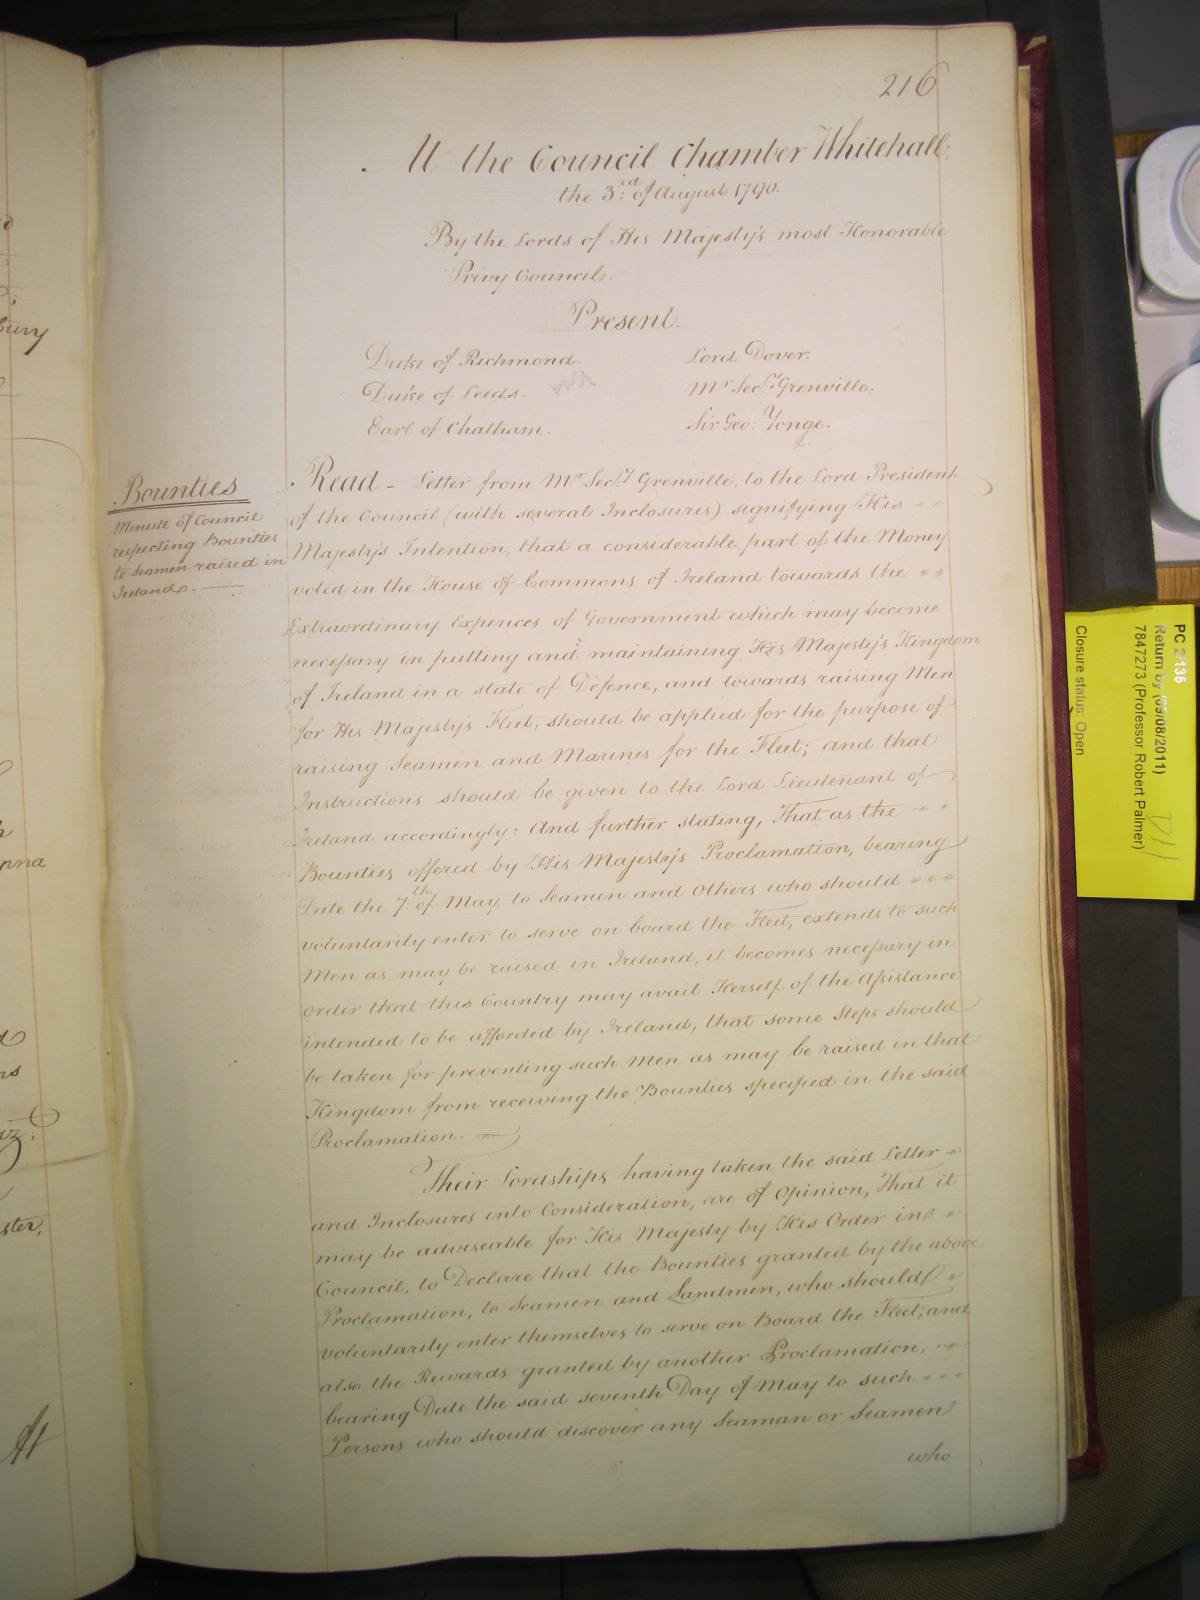 216
At the Council Chamber Whitehall,
the 3rd of August 1790.
By the Lords of His Majesty's most Honorable
Privy Council.
Present.
Duke of Richmond. Lord Dover.
Duke of Leeds. Mr Secry Grenville.
Earl of Chatham. Sir Geo: Yonge.
Bounties
Minute of Council
respecting Bounties
to Seamen raised in
Ireland.
Read - Letter from Mr Secry Grenville, to the Lord President
of the Council (with several Inclosures) signifying His
Majesty's Intention, that a considerable part of the Money
voted in the House of Commons of Ireland towards the
Extraordinary Expences of Government which may become
necessary in putting and maintaining His Majesty's Kingdom
of Ireland in a state of Defence, and towards raising Men
for His Majesty's Fleet, should be applied for the purpose of
raising Seamen and Marines for the Fleet; and that
Instructions should be given to the Lord Lieutenant of
Ireland accordingly: And further stating, That as the
Bounties offered by His Majesty's Proclamation, bearing
Date the 7th of May, to Seamen and Others who should
voluntarily enter to serve on board the Fleet, extends to such
Men as may be raised in Ireland, it becomes necessary in
order that this Country may avail Herself of the Assistance
intended to be afforded by Ireland, that some Steps should
be taken for preventing such Men as may be raised in that
Kingdom from receiving the Bounties specified in the said
Proclamation.
Their Lordships having taken the said Letter
and Inclosures into Consideration, are of Opinion, That it
may be adviseable for His Majesty by His Order in
Council, to Declare that the Bounties granted by the above
Proclamation, to Seamen and Landmen, who should
voluntarily enter themselves to serve on Board the Fleet; and
also the Rewards granted by another Proclamation,
bearing Date the said seventh Day of May to such
Persons who should discover any Seaman or Seamen
who
PC 2/135
Return by (09/08/2011)
7847273 (Professor Robert Palmer)
Closure status: Open
D11
bury
ster,
At